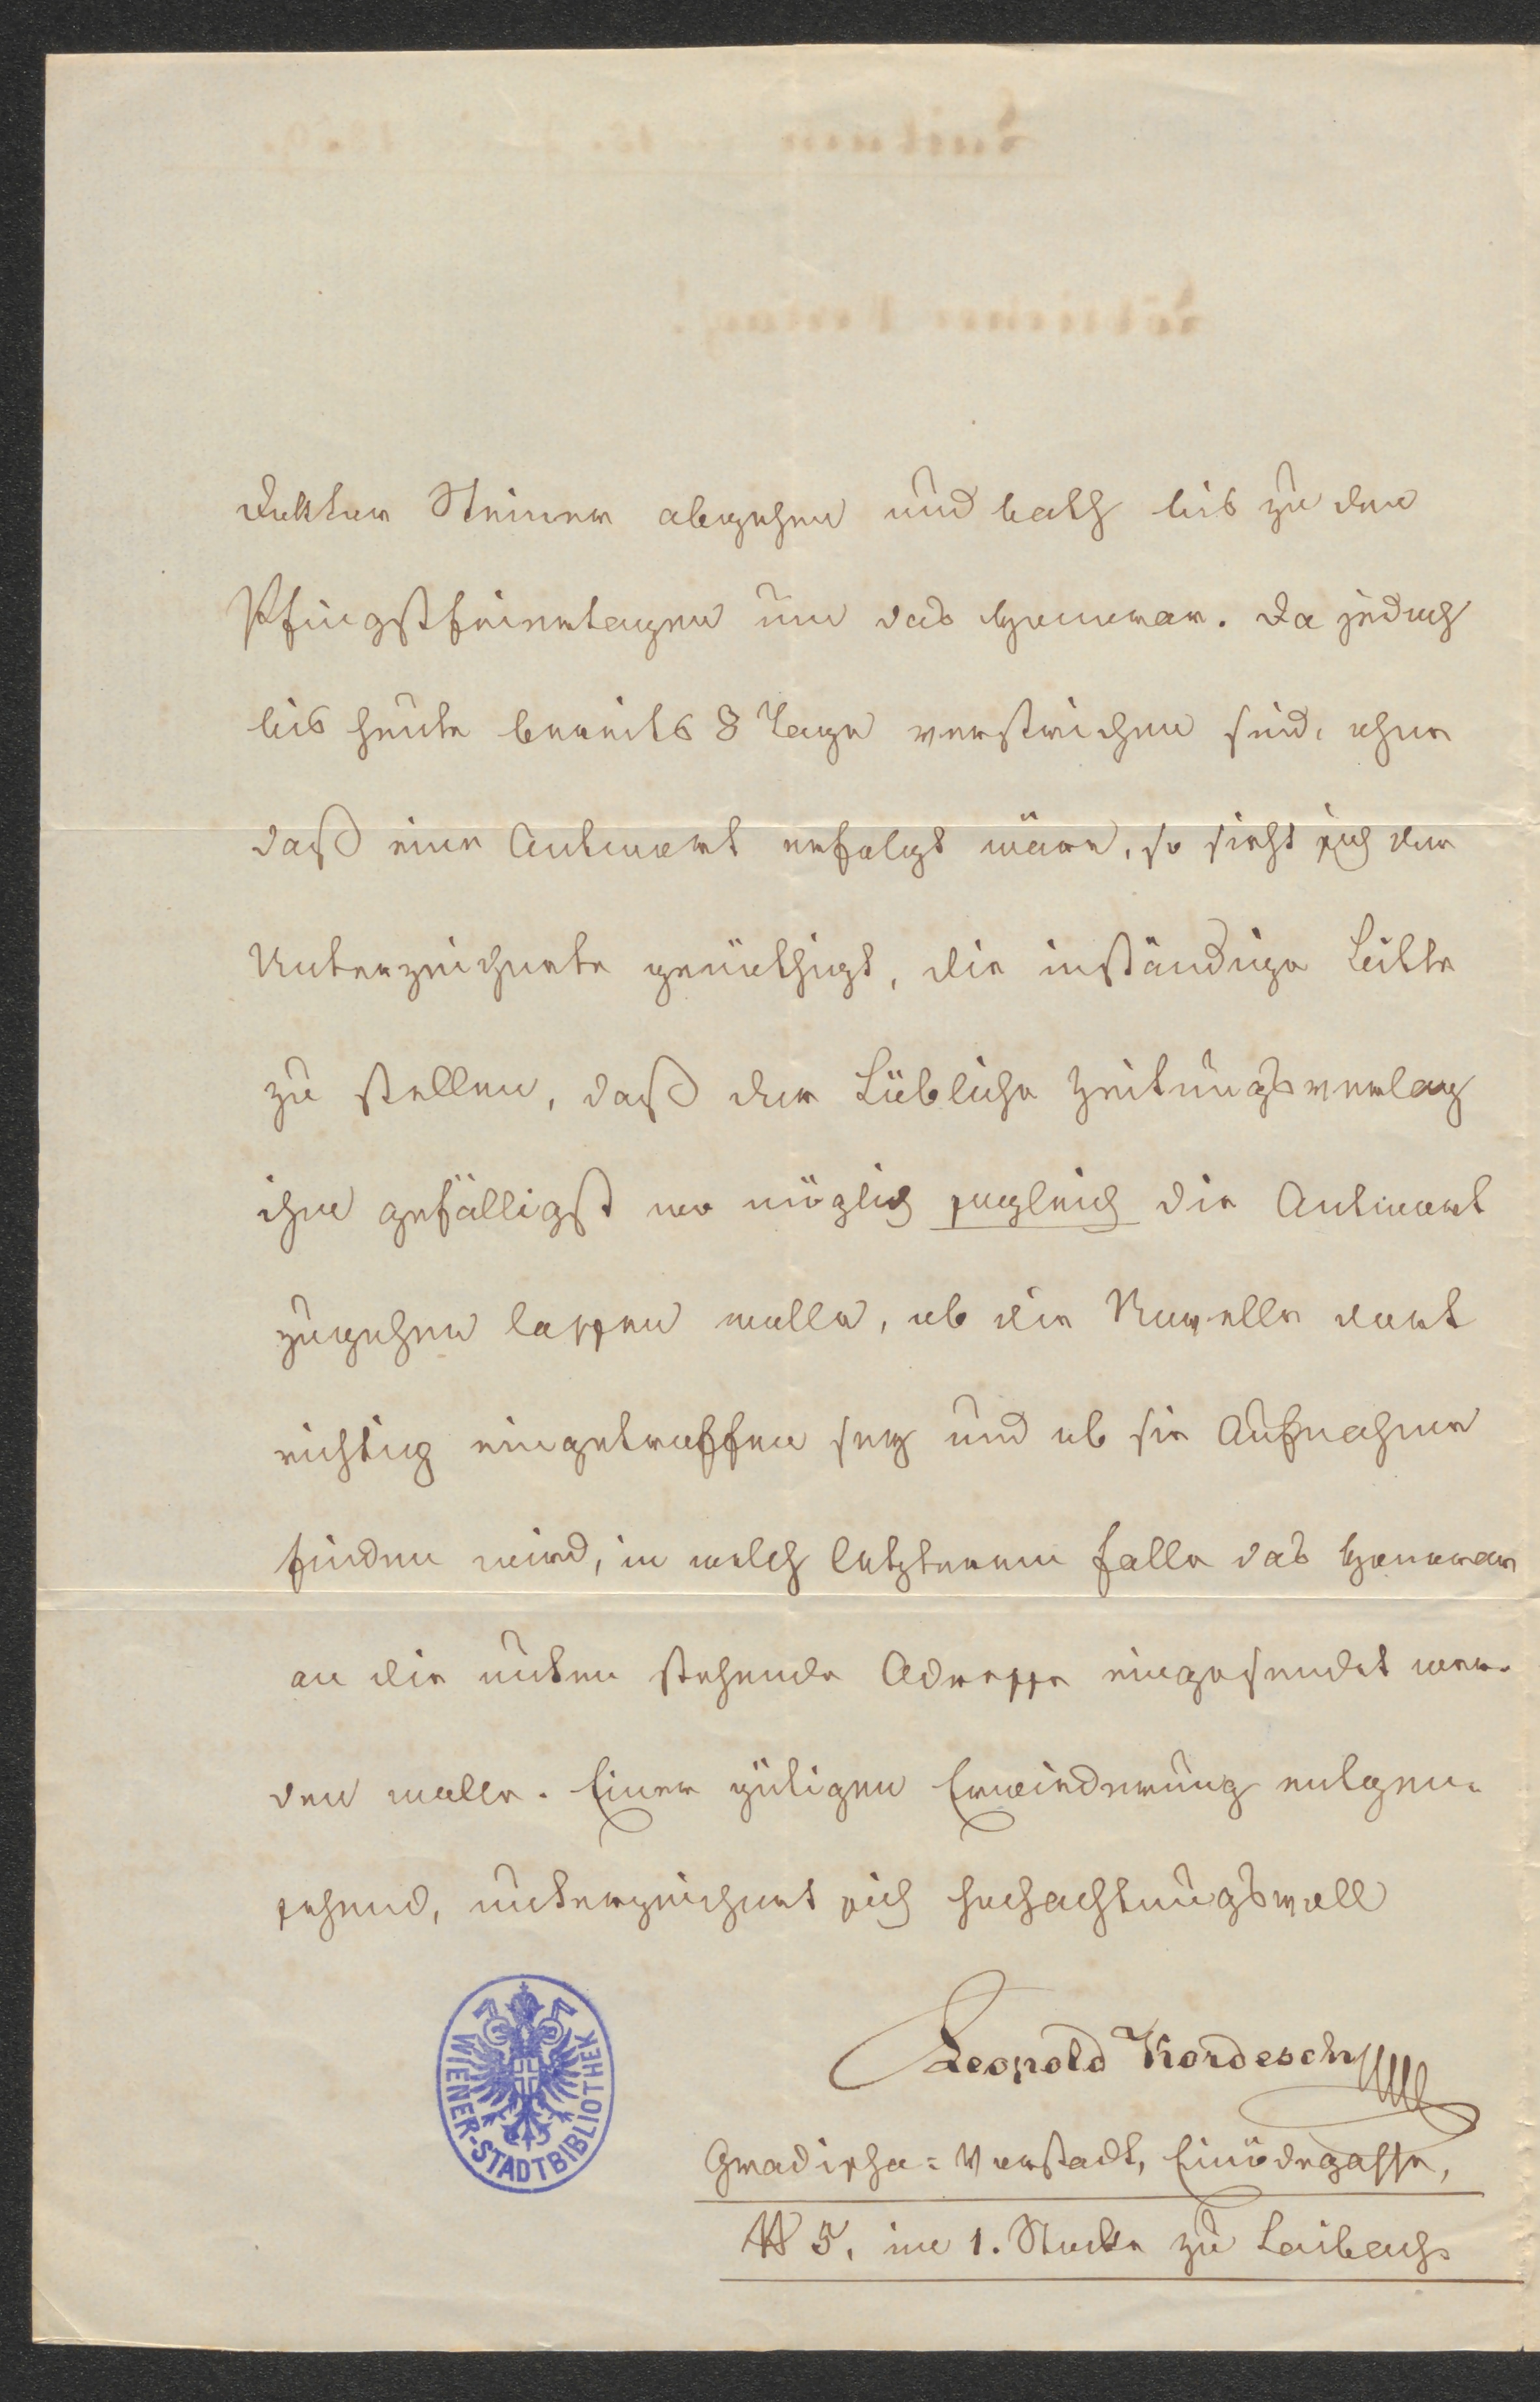 Doktor Steiner abgehen und bath bis zu den
Pfingstfeiertagen um das Honorar. Da jedoch
bis heute bereits 8 Tage verstrichen sind, ohne
daß eine Antwort erfolgt wäre, so sieht sich der
Unterzeichnete genöthigt, die inständige Bitte
zu stellen, daß der Löbliche Zeitungsverlag
ihm gefälligst wo möglich sogleich die Antwort
zugehen lassen wolle, ob die Novelle dort
richtig eingetroffen sey und ob sie Aufnahme
finden wird, in welch letzterem Falle das Honorar
an die unten stehende Adresse eingesendet wer-
den wolle. Einer gütigen Erwiederung entgen-
sehend, unterzeichnet sich hochachtungsvoll
Leopold Kordesch
Gradischa-Vorstadt, Einödgasse,
N 5, im 1. Stocke zu Laibach.
WIENER-STADTBIBLIOTHEK